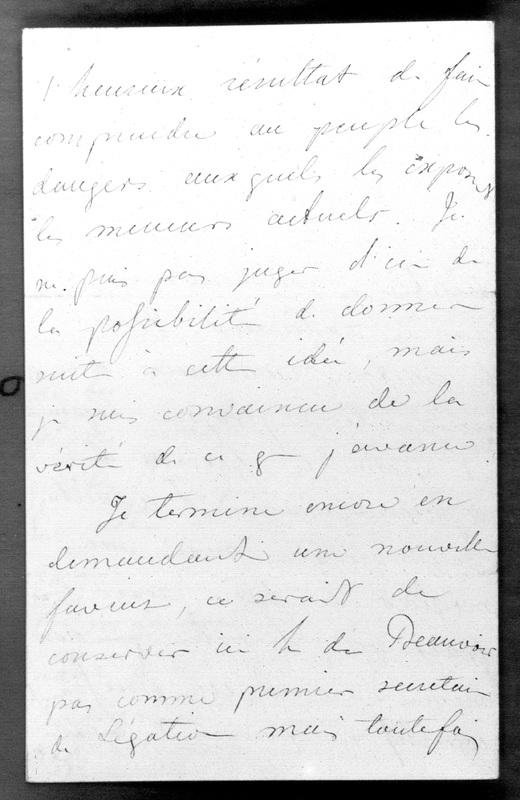 l'heureux résultat de faire
comprendre au peuple les
dangers auxquels les exposent
les meneurs actuels. Je
ne puis pas juger d'ici de
la possibilité de donner
suite à cette idée, mais
je suis convaincu de la
vérité de ce q j'avance
Je termine encore en
demandant une nouvelle
faveur, ce serait de
conserver ici M de Beauvoir
pas comme premier secretaire
de Légation mais toutefois